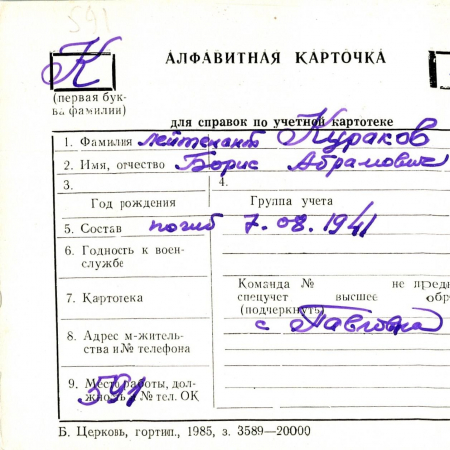 591
К
АЛФАВИТНАЯ КАРТОЧКА
(первая бук-
ва фамилии)
для справок по учетной картотеке
1. Фамилия лейтенант Кураков
2. Имя, отчество Борис Абрамович
3. 4.
Год рождения Группа учета
5. Состав погиб 7.08.1941
6. Годность к воен-
службе
Команда № не предн
7. Картотека спецучет высшее обр
(подчеркнуть)
с Павловка
8. Адрес м-житель-
ства и № телефона
9. Место работы, дол-
жность и № тел. ОК
591
Б. Церковь, гортип., 1985, з. 3589—20000